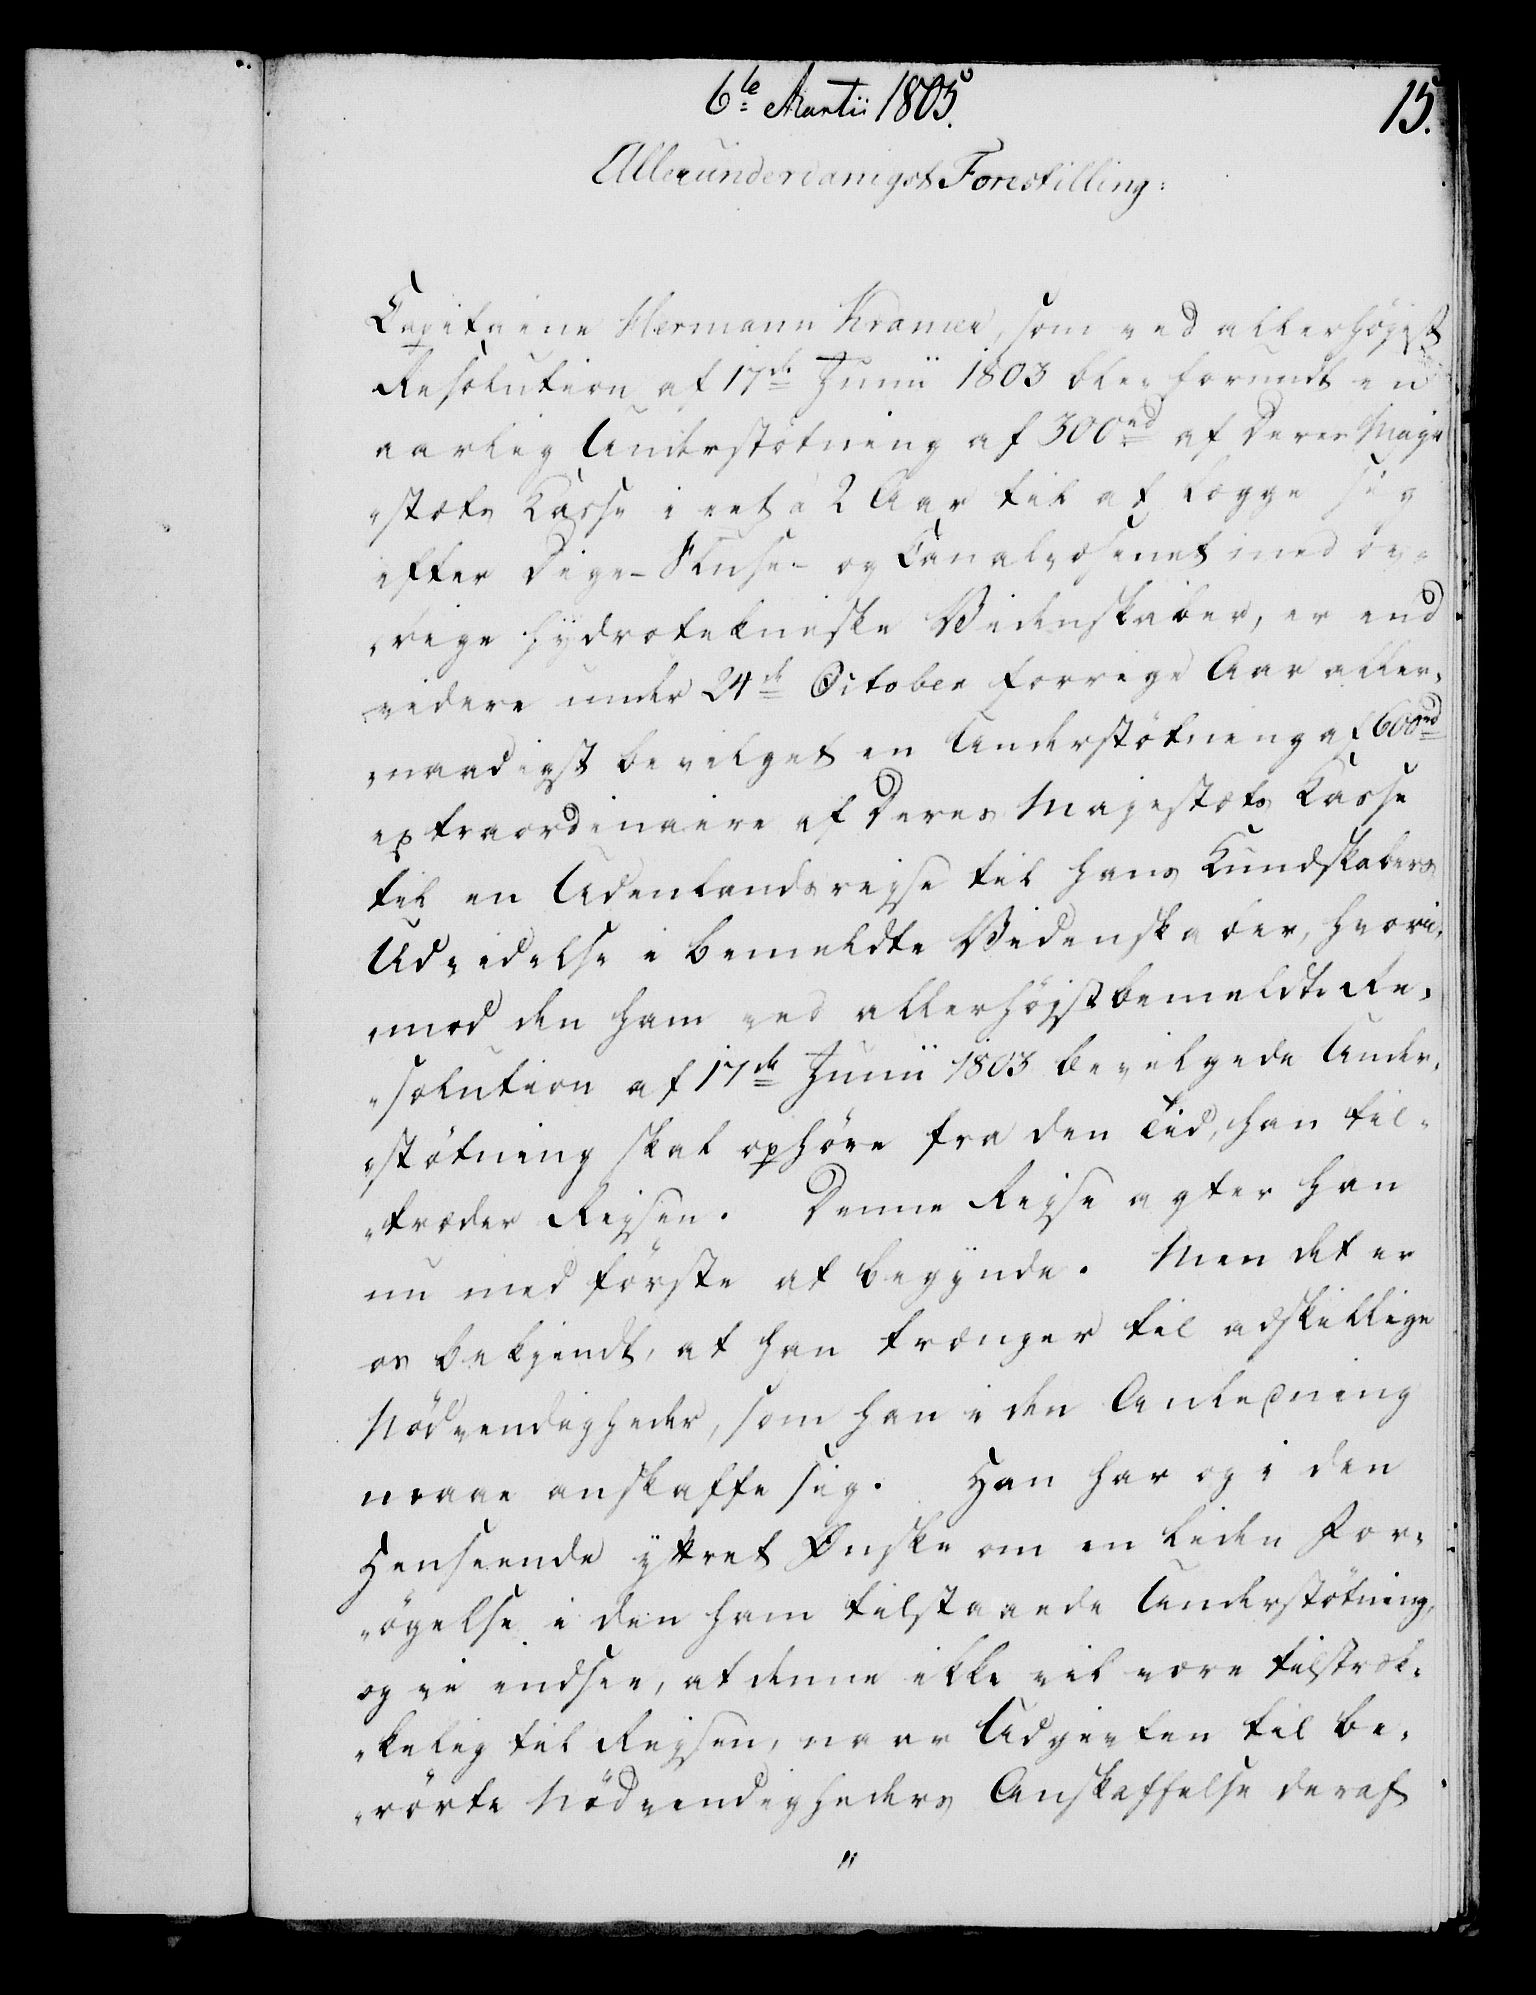 6te Martii 1805.
15.
Allerunderdanigst Forestilling:
Capitaine Hermann Kramer, som ved allerhöjest
Resolution af 17de Junii 1803 blev forundt en
aarlig Understötning af 300rd af Deres Maje
"stæts Kasse i eet à 2 Aar til at lægge sig
efter Dige- Sluse- og Canalvæsenet med öv-
"rige hydrotekniske Videnskaber, er end
videre under 24de October forrige Aar aller-
"naadigst bevilget en Understötning af 600rd
extraordinaire af Deres Majestæts Kasse
til en Udenlandsreyse til hans Kundskabers
Udvidelse i bemeldte Videnskaber, hvori-
"mod den ham ved allerhöjstbemeldte Re-
"solution af 17de Junii 1803 bevilgede Under-
"stötning skal ophöre fra den Tid, han til-
"træder Rejsen. Denne Rejse agter han
nu med förste at begynde. Men det er
os bekjendt, at han trænger til adskillige
Nödvendigheder, som han i den Anledning
maae anskaffe sig. Han har og i den
Henseende yttret Ønske om en liden For-
"ögelse i den ham tilstaaede Understötning,
og vi indsee, at denne ikke vil være tilstræk-
"kelig til Rejsen, naar Udgivten til be-
"rörte Nödvendigheders Anskaffelse deraf
"